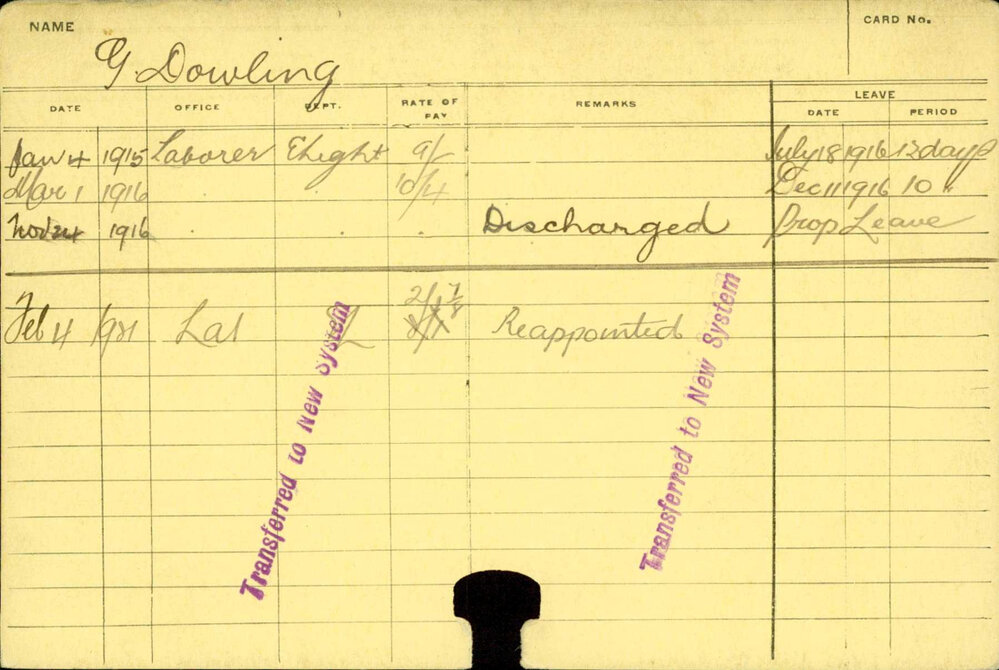 NAME
CARD No.
G. Dowling
DATE OFFICE DEPT. RATE OF PAY REMARKS LEAVE
DATE PERIOD
Jan 4 1915 Laborer 9/ July 18 1916 12 days
Mar 1 1916 10/4 Dec 11 1916 10 "
Nov 24 1916 . . . Discharged Prop Leave
Feb 4 Lab L Reappointed
Transferred to New System
Transferred to New System